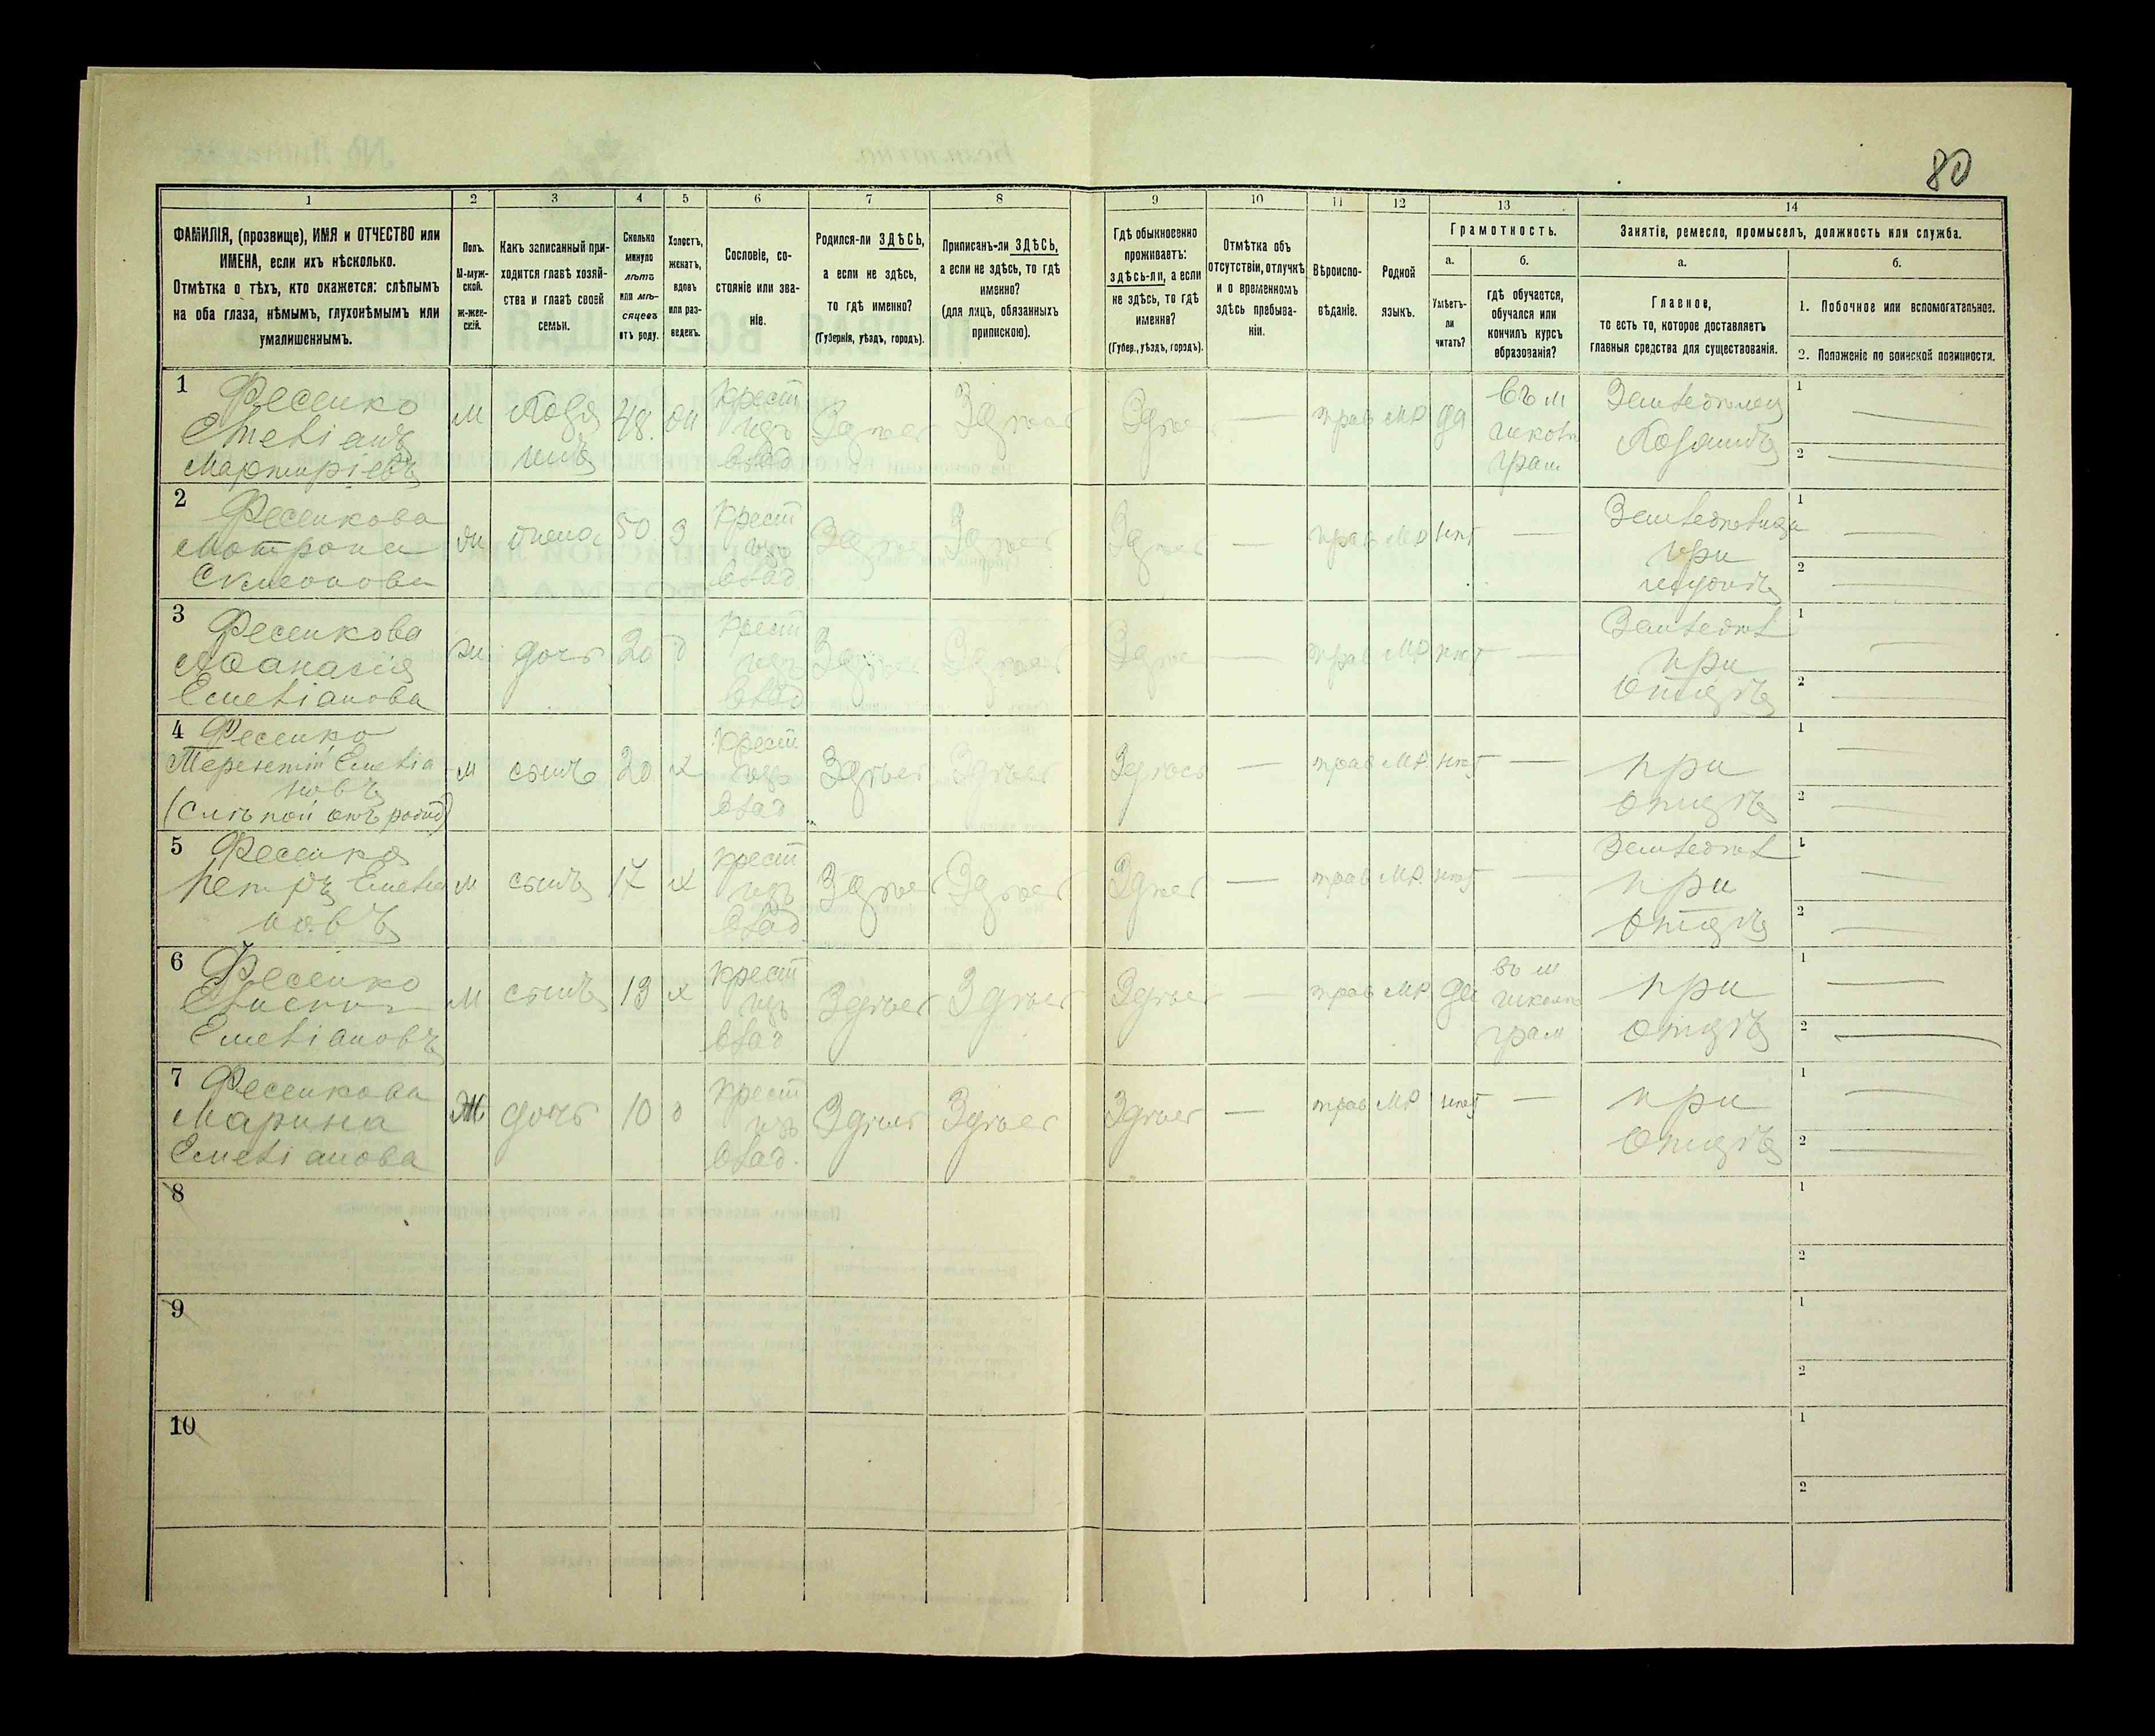 80
1 2 3 4 5 6 7 8 9 10 11 12 13 14
ФАМИЛІЯ, (прозвище), ИМЯ и ОТЧЕСТВО или
ИМЕНА, если ихъ нѣсколько.
Отмѣтка о тѣхъ, кто окажется: слѣпымъ
на оба глаза, нѣмымъ, глухонѣмымъ или
умалишеннымъ.
Полъ.
М-муж-
ской.
ж-жен-
скій.
Какъ записанный при-
ходится главѣ хозяй-
ства и главѣ своей
семьи.
Сколько
минуло
лѣтъ
или мѣ-
сяцевъ
отъ роду.
Холостъ,
женатъ,
вдовъ
или раз-
веденъ.
Сословіе, со-
стояніе или зва-
ніе.
Родился-ли ЗДѢСЬ,
а если не здѣсь,
то гдѣ именно?
(Губернія, уѣздъ, городъ).
Приписанъ-ли ЗДѢСЬ,
а если не здѣсь, то гдѣ
именно?
(для лицъ, обязанныхъ
припискою).
Гдѣ обыкновенно
проживаетъ:
здѣсь-ли, а если
не здѣсь, то гдѣ
именно?
(Губер., уѣздъ, городъ).
Отмѣтка объ
отсутствіи, отлучкѣ
и о временномъ
здѣсь пребыва-
ніи.
Вѣроиспо-
вѣданіе.
Родной
языкъ.
Грамотность.
а.
Умѣетъ-
ли
читать?
б.
гдѣ обучается,
обучался или
кончилъ курсъ
образованія?
Занятіе, ремесло, промыселъ, должность или служба.
а.
Главное,
то есть то, которое доставляетъ
главныя средства для существованія.
б.
1. Побочное или вспомогательное.
2. Положеніе по воинской повинности.
1 Фесенко
Емеліанъ
Мартиріевъ
М
48.
Крест
изъ
влад
Здѣсь Здѣсь Здѣсь —
прав МР да
Земледѣлец
1 —
2 —
2 Фесенкова
Матрона
жена 50 З
Крест
изъ
влад
Здѣсь Здѣсь Здѣсь —
прав МР нѣт —
при
1 —
2 —
3 Фесенкова
Афанасія
Емеліанова
дочь 20 д
Крест
изъ
влад
Здѣсь Здѣсь Здѣсь —
прав МР нѣт —
Земледѣл
при
отцѣ
1 —
2 —
4 Фесенко
Терентій Емеліа
новъ
(Слѣпой отъ рожд)
м сынъ 20 х
Крест
изъ
влад
Здѣсь Здѣсь Здѣсь —
прав МР. нѣт —
при
отцѣ
1 —
2 —
5 Фесенко
Петръ Емеліа
новъ
м сынъ 17 х
Крест
изъ
влад
Здѣсь Здѣсь Здѣсь —
прав МР. нѣт —
Земледѣл
при
отцѣ
1 —
2 —
6 Фесенко
Емеліановъ
м сынъ 13 х
Крест
изъ
влад
Здѣсь Здѣсь Здѣсь —
прав МР да
при
отцѣ
1 —
2 —
7 Фесенкова
Марина
Емеліанова
Ж дочь 10 д
Крест
изъ
влад.
Здѣсь Здѣсь Здѣсь —
прав МР нѣт —
при
отцѣ
1 —
2 —
8
1
2
9
1
2
10
1
2